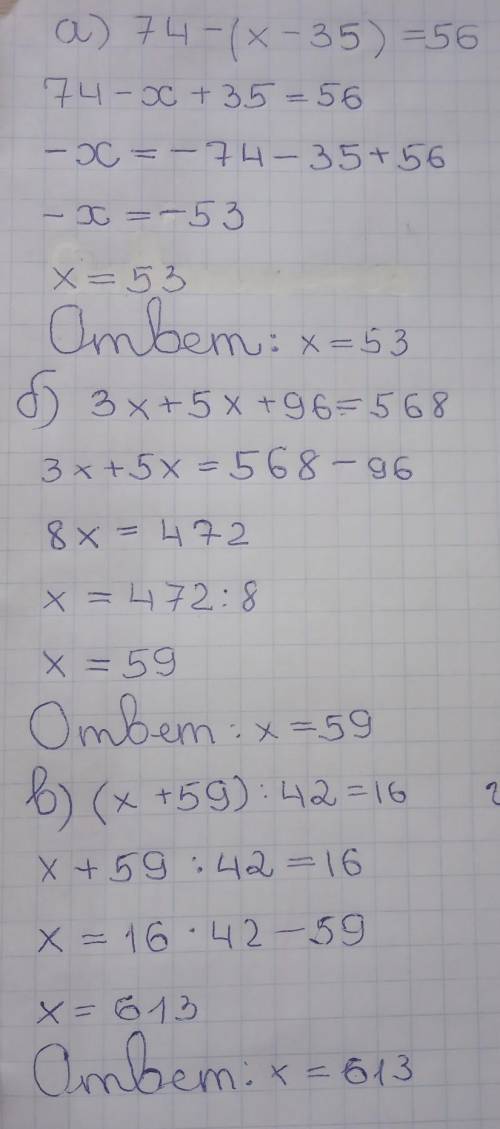 а) 74-(x-35)=56
74-x+35=56
-x=-74-35+56
-x=-53
x=53
Ответ: x=53
б) 3x+5x+96=568
3x+5x=568-96
8x=472
x=472:8
x=59
Ответ: x=59
в) (x+59):42=16
x+59:42=16
x=16·42-59
x=613
Ответ: x=613